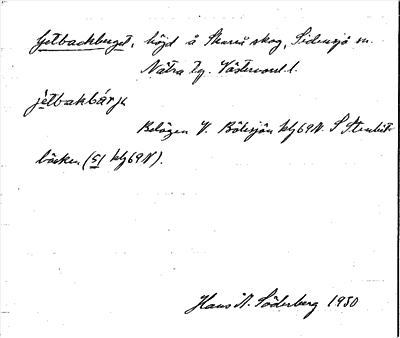 Getbackberget, höjd å Skurå skog, Sidensjö sn.
Nätra tg. Västernorrl. l.
jètbakbárjk
Belägen V. Bölesjön blg 69N. S Stenbit-
bäcken (51 blg 69N).
Hans N. Söderberg 1930